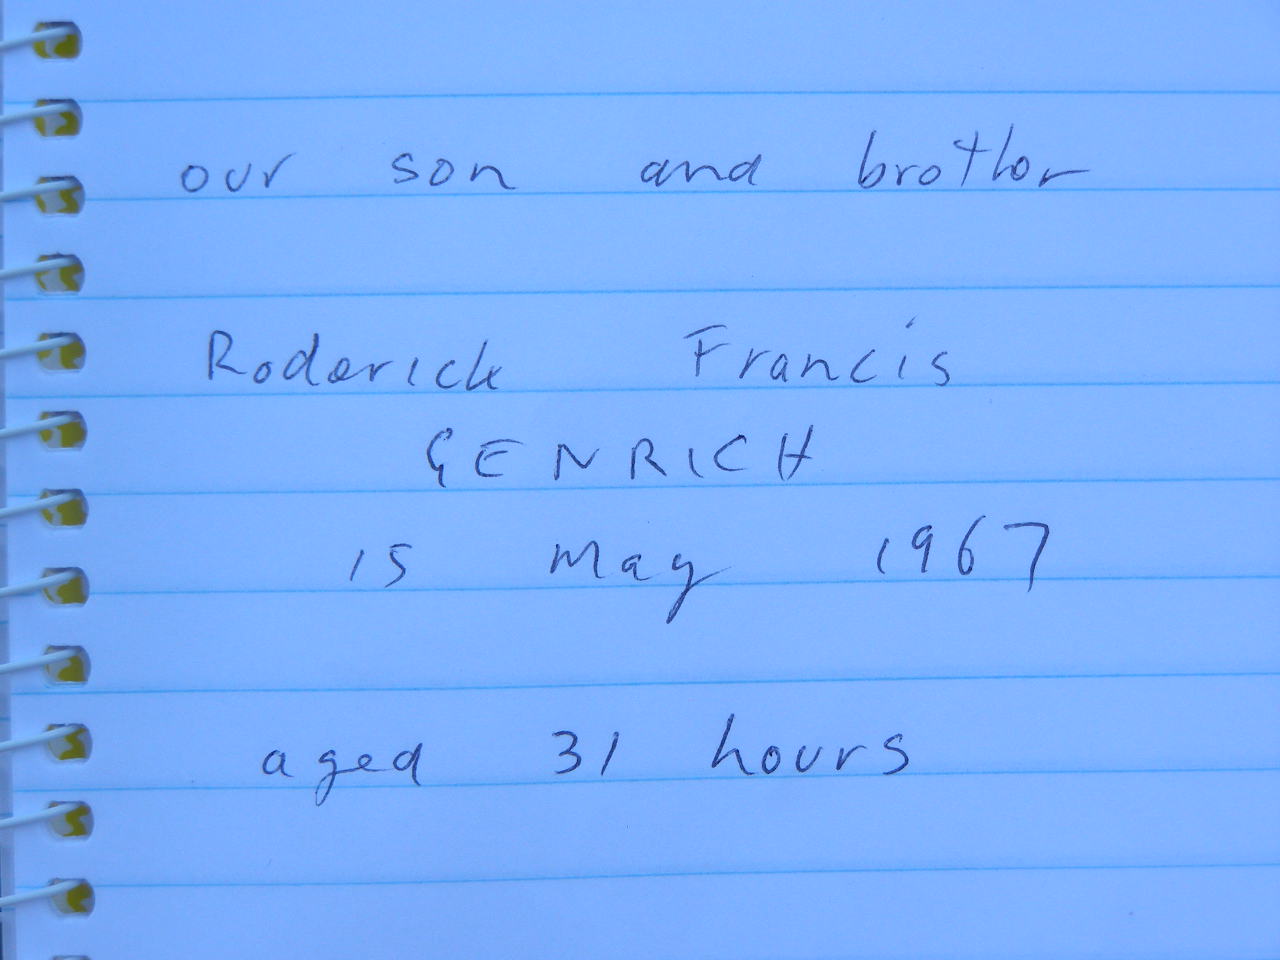 our son and brother
Roderick Francis
GENRICH
15 May 1967
aged 31 hours